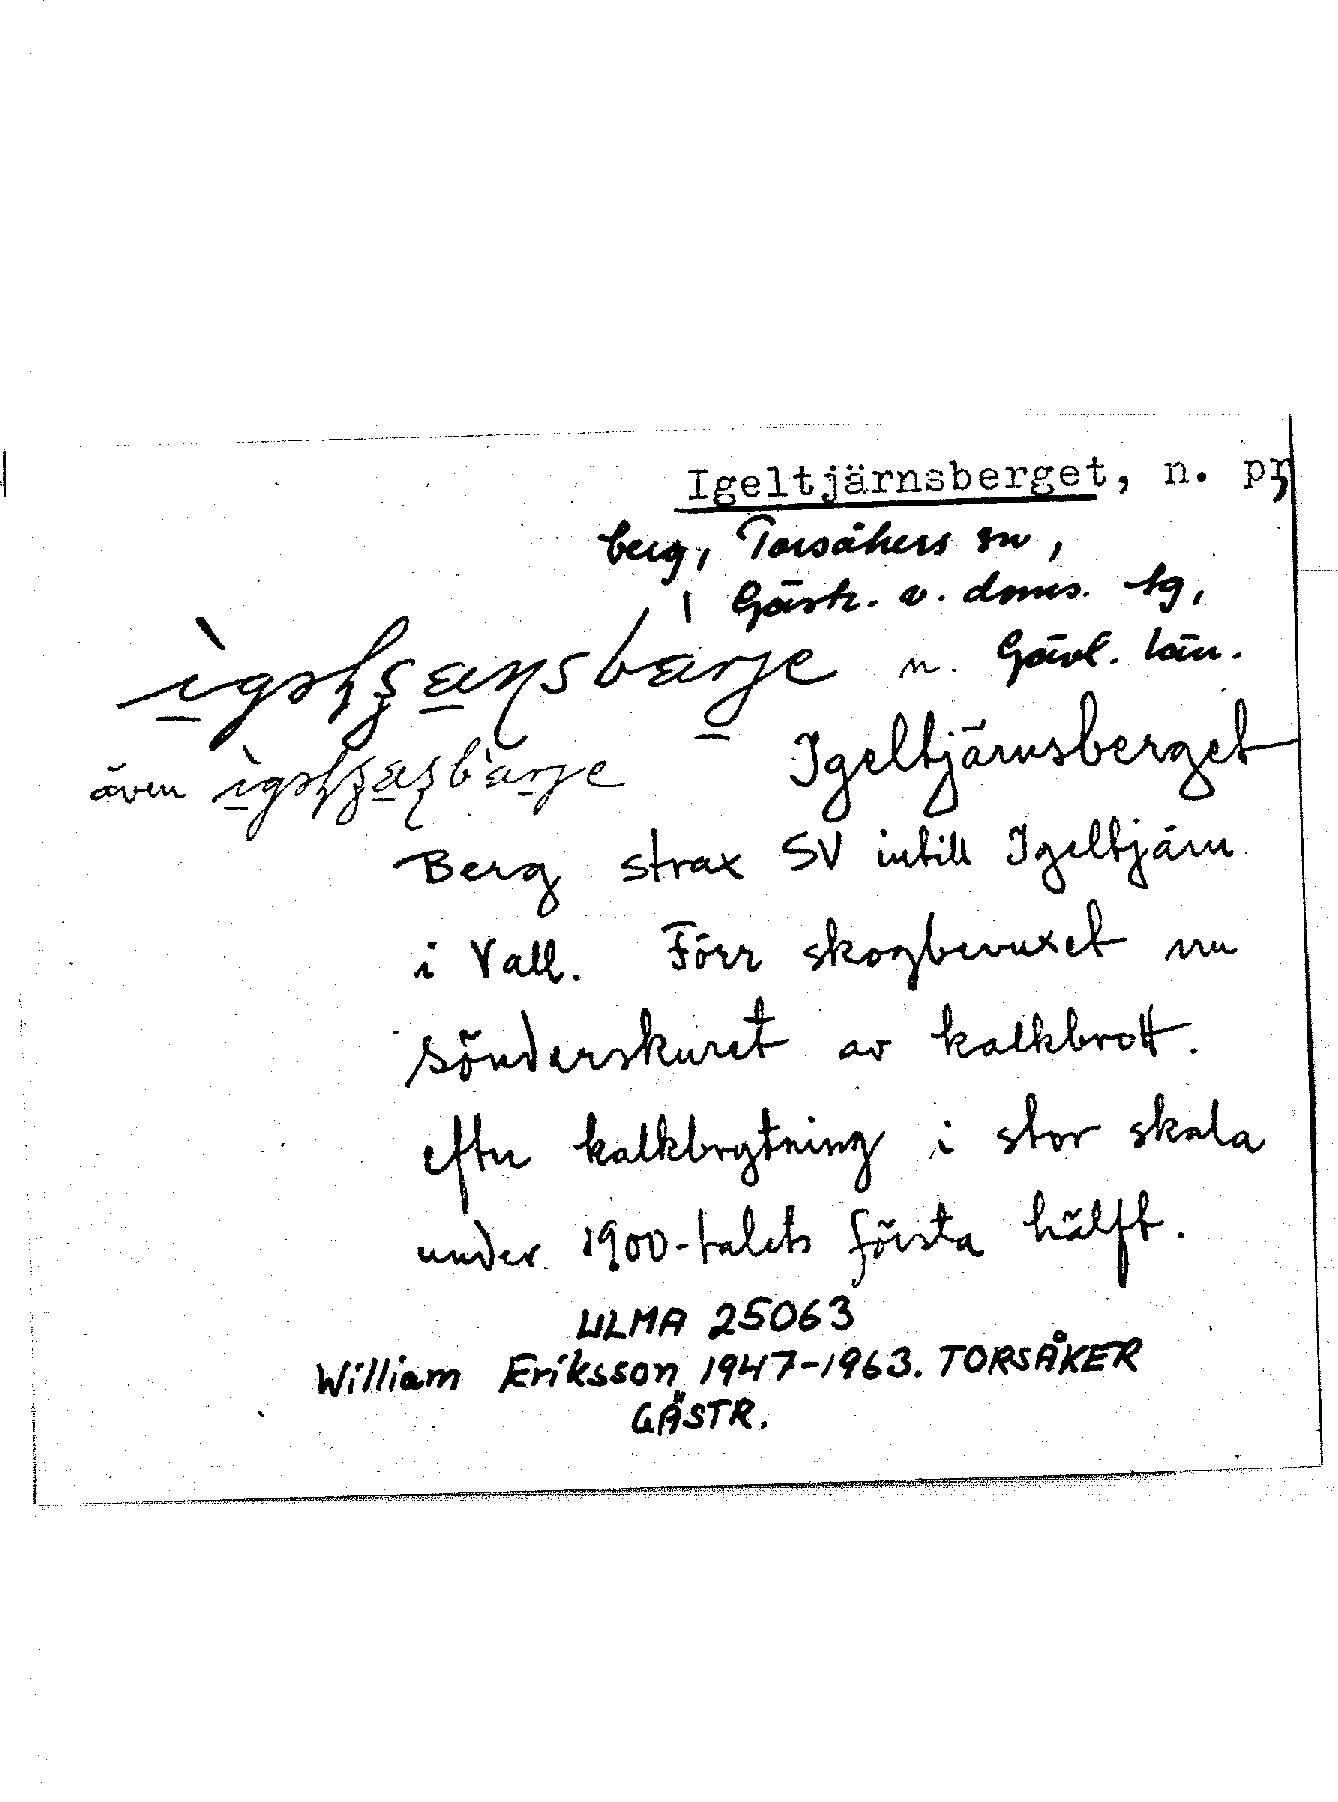 Igeltjärnsberget, n. pr
berg, Torsåkers sn,
Gästr. v. doms. tg,
n. Gävl. län.
Igeltjärnsberget
även
Berg strax SV intill Igeltjärn
i Vall. Förr skogbevuxet nu
sönderskuret av kalkbrott.
efter kalkbrytning i stor skala
under 1900-talets första hälft.
ULMA 25063
William Eriksson 1947-1963. TORSÅKER
GÄSTR.